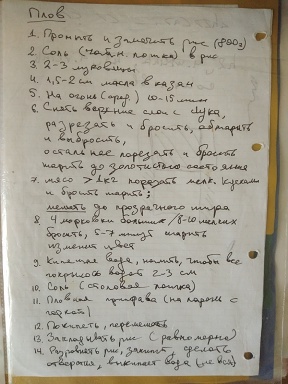 Плов
1. Промыть и замочить рис (800г)
2. Соль (чайн. ложка) в рис
3. 2-3 луковицы
4. 1,5-2 см масла в казан
5. На огонь (сред.) 10-15 мин
6. Снять верхние слои с лука,
разрезать и бросить, обжарить
и выбросить,
остальное порезать и бросить
жарить до золотистого состояния
7. мясо > 1кг порезать мелк. кусками
и бросить жарить;
мешать до прозрачного жира
8. 4 морковки больших / 8-10 мелких
бросить, 5-7 минут жарить
изменит цвет
9. Кипяченая вода, налить, чтобы все
покрылось водой 2-3 см
10. Соль (столовая ложка)
11. Пловная приправа (на ладонь с
горкой)
12. Покипеть, перемешать
13. Закладывать рис (равномерно)
14. Разровнять рис, закипит, сделать
отверстия, выкипает вода (не вся)